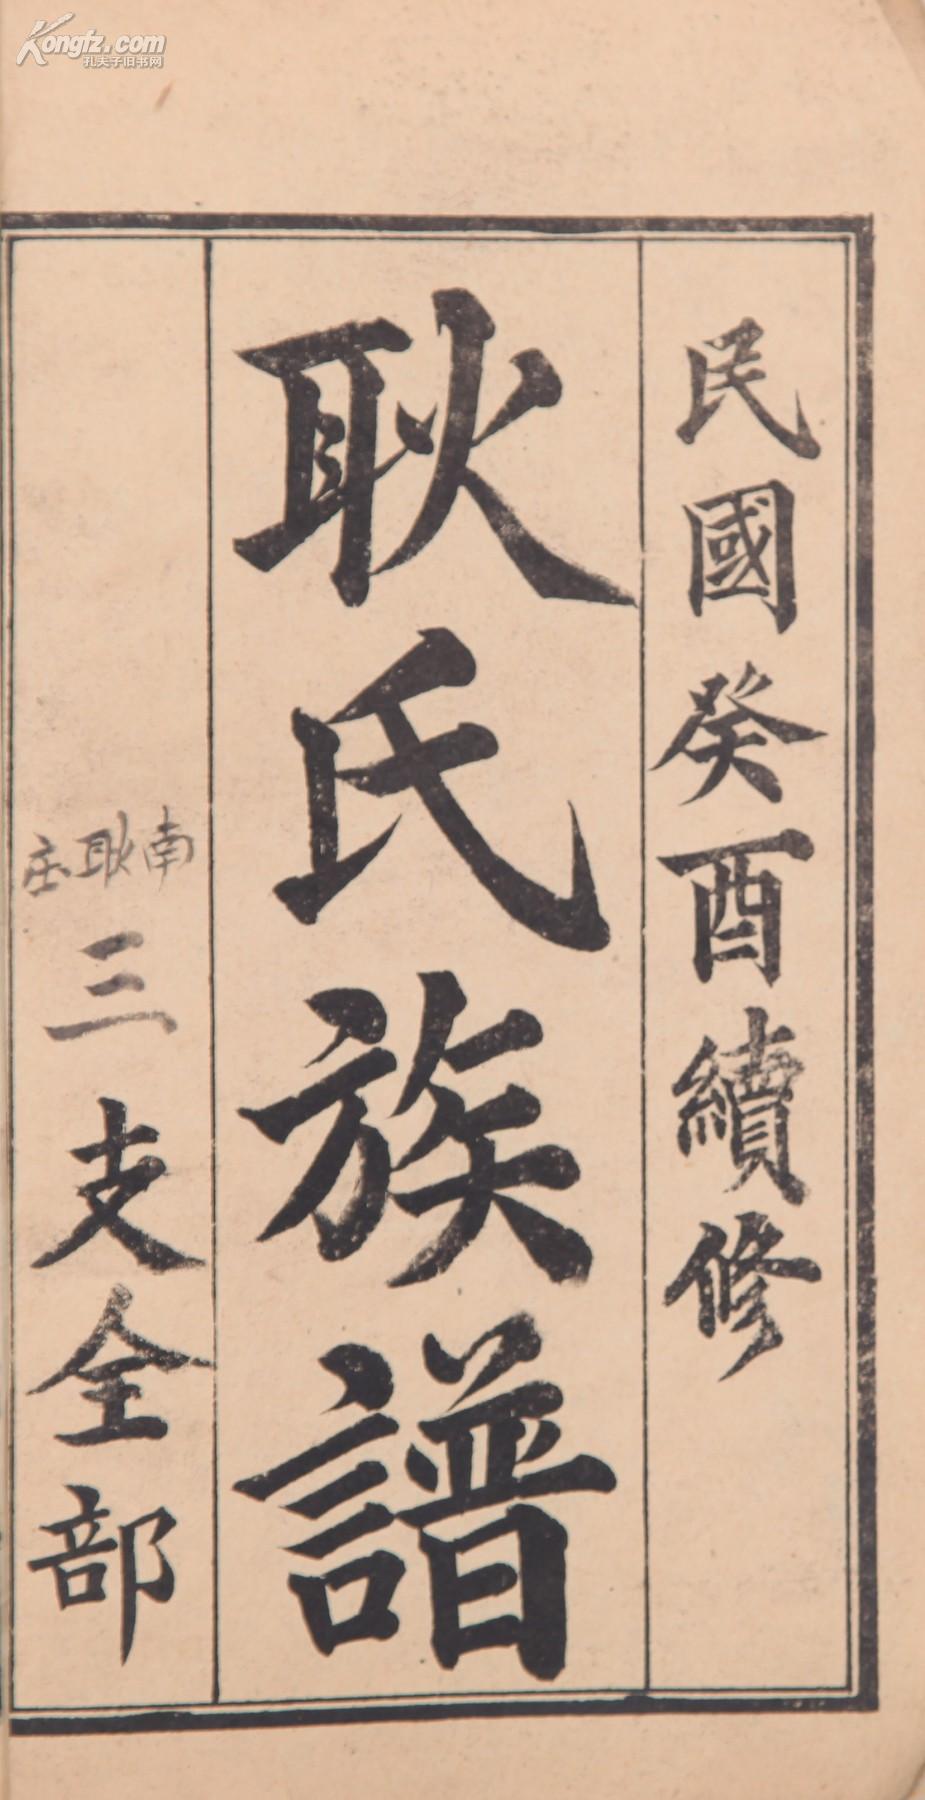 Kongfz.com
孔夫子旧书网
民國癸酉續修
耿氏族譜
南耿庄
三支全部